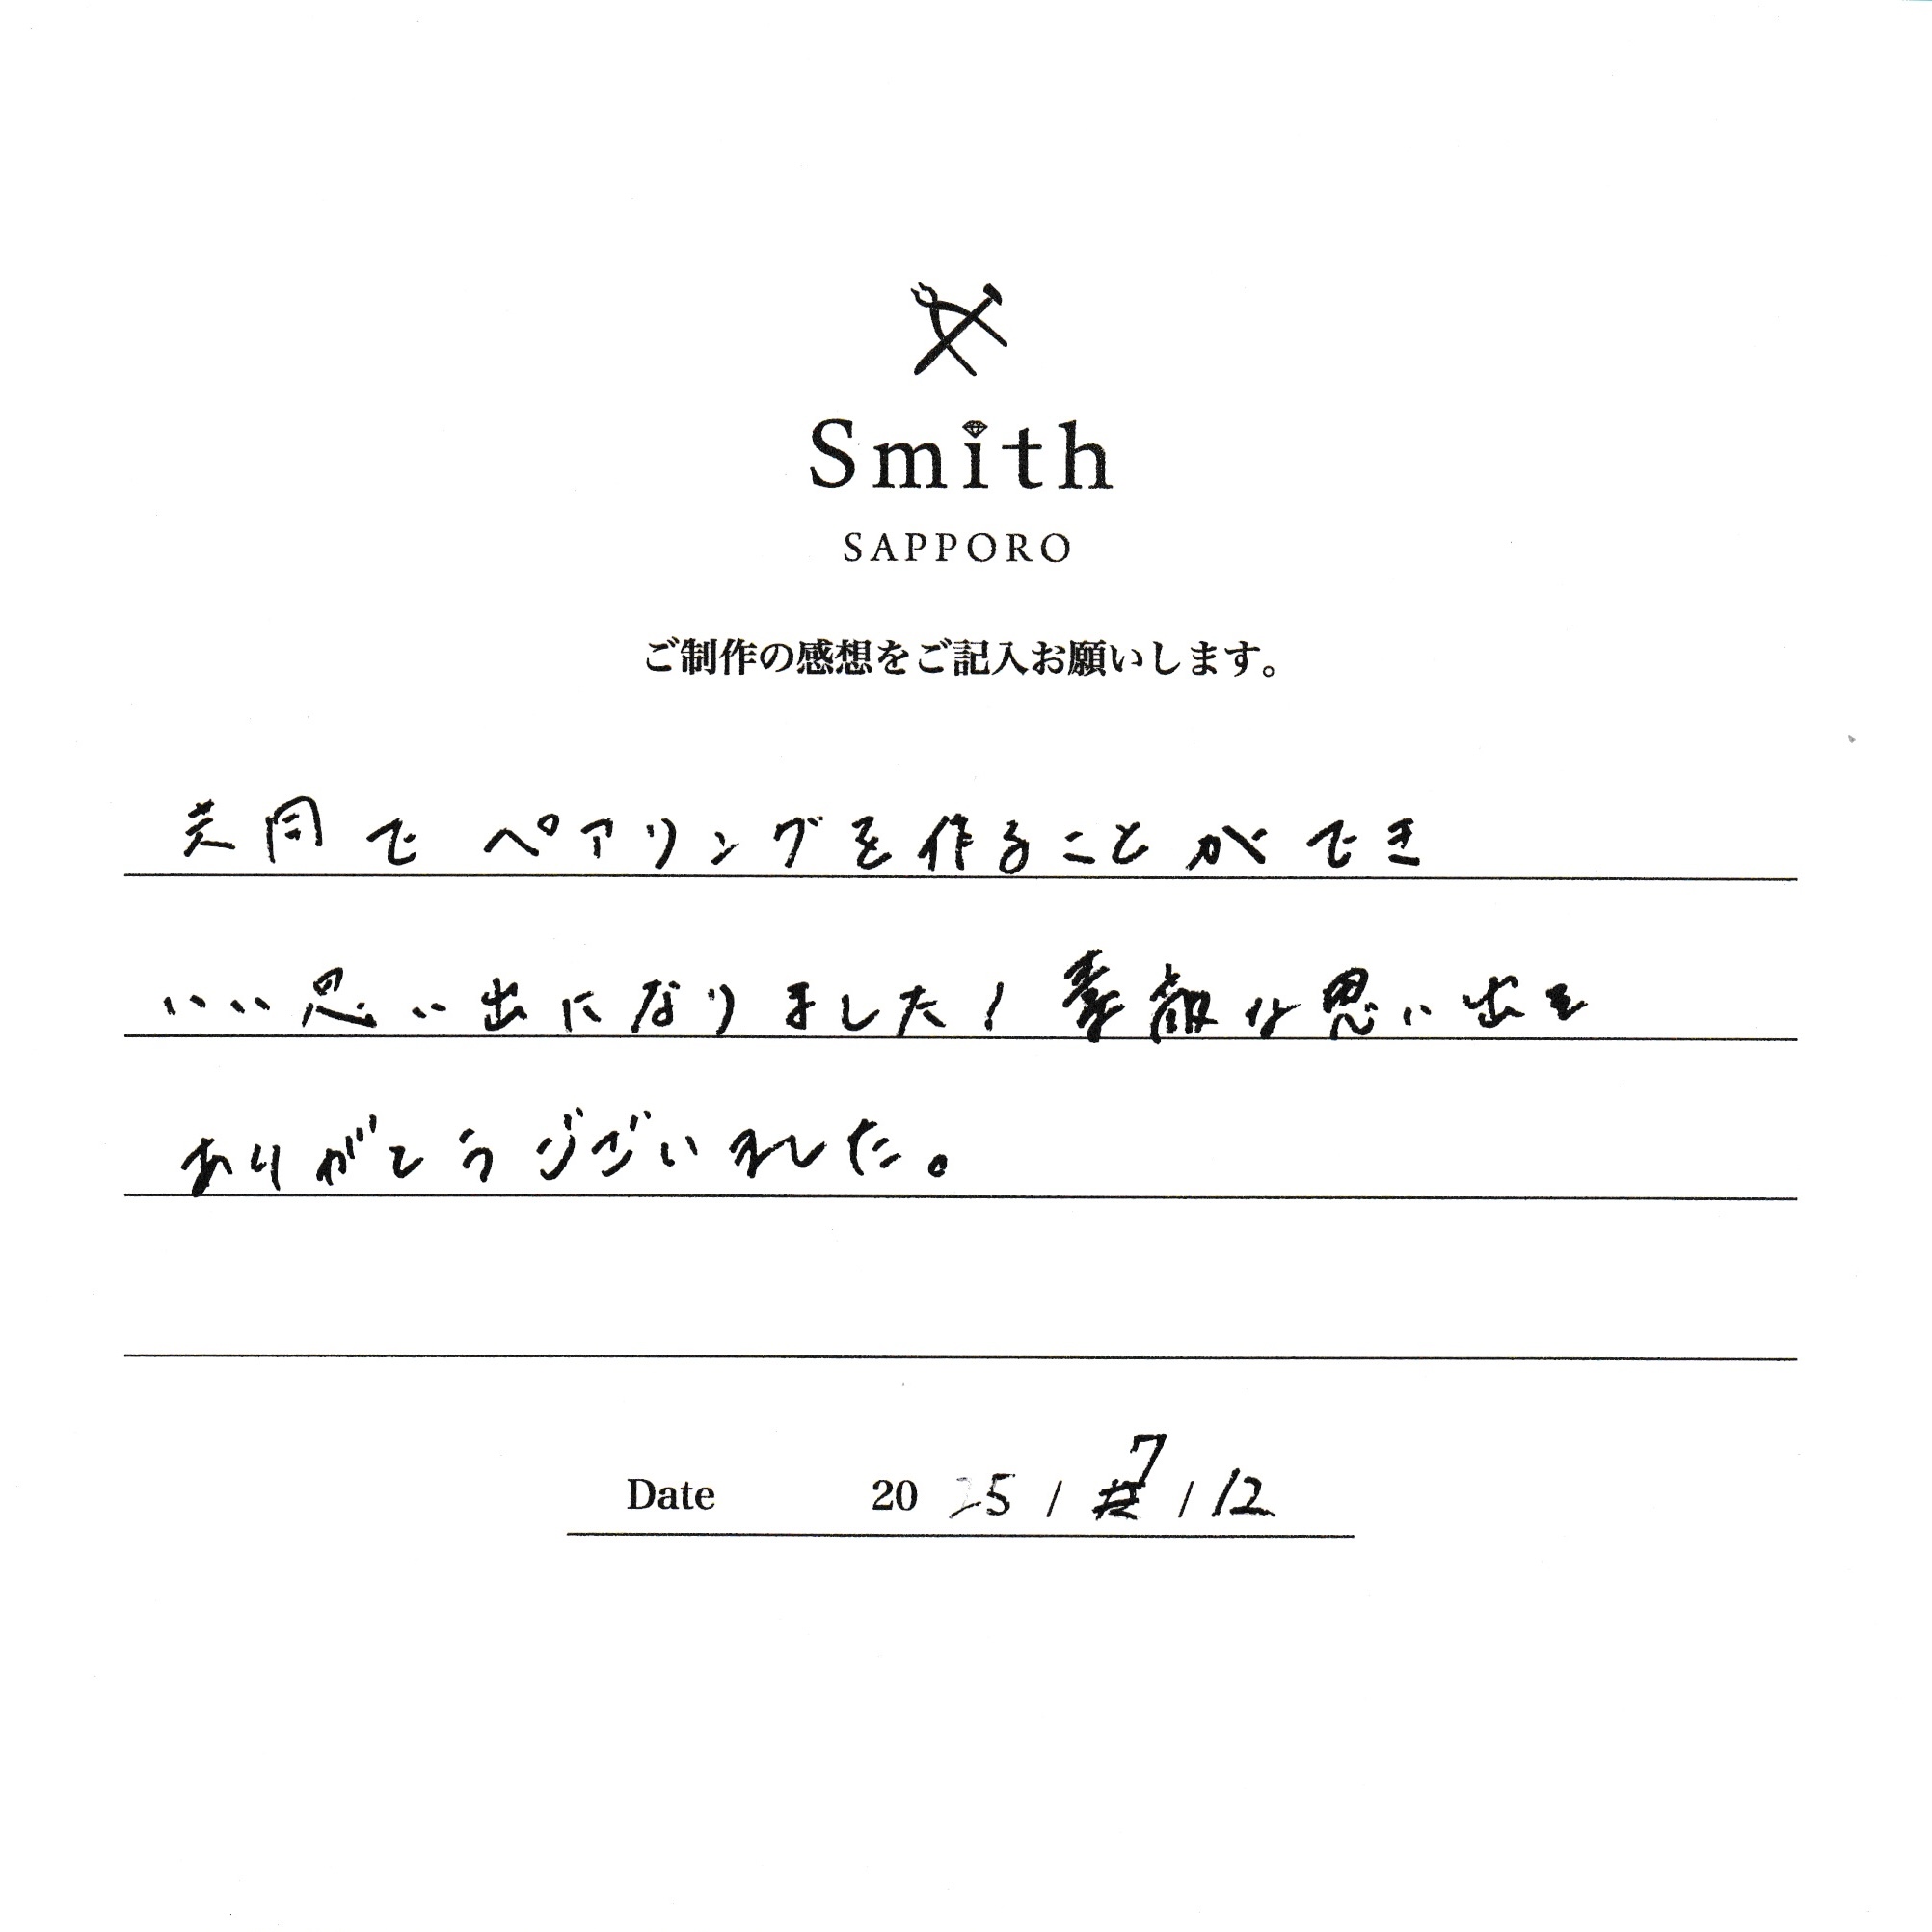 Smith
SAPPORO
ご制作の感想をご記入お願いします。
共同でペアリングを作ることができ
いい思い出になりました！素敵な思い出を
ありがとうございました。
Date 2025/7/12